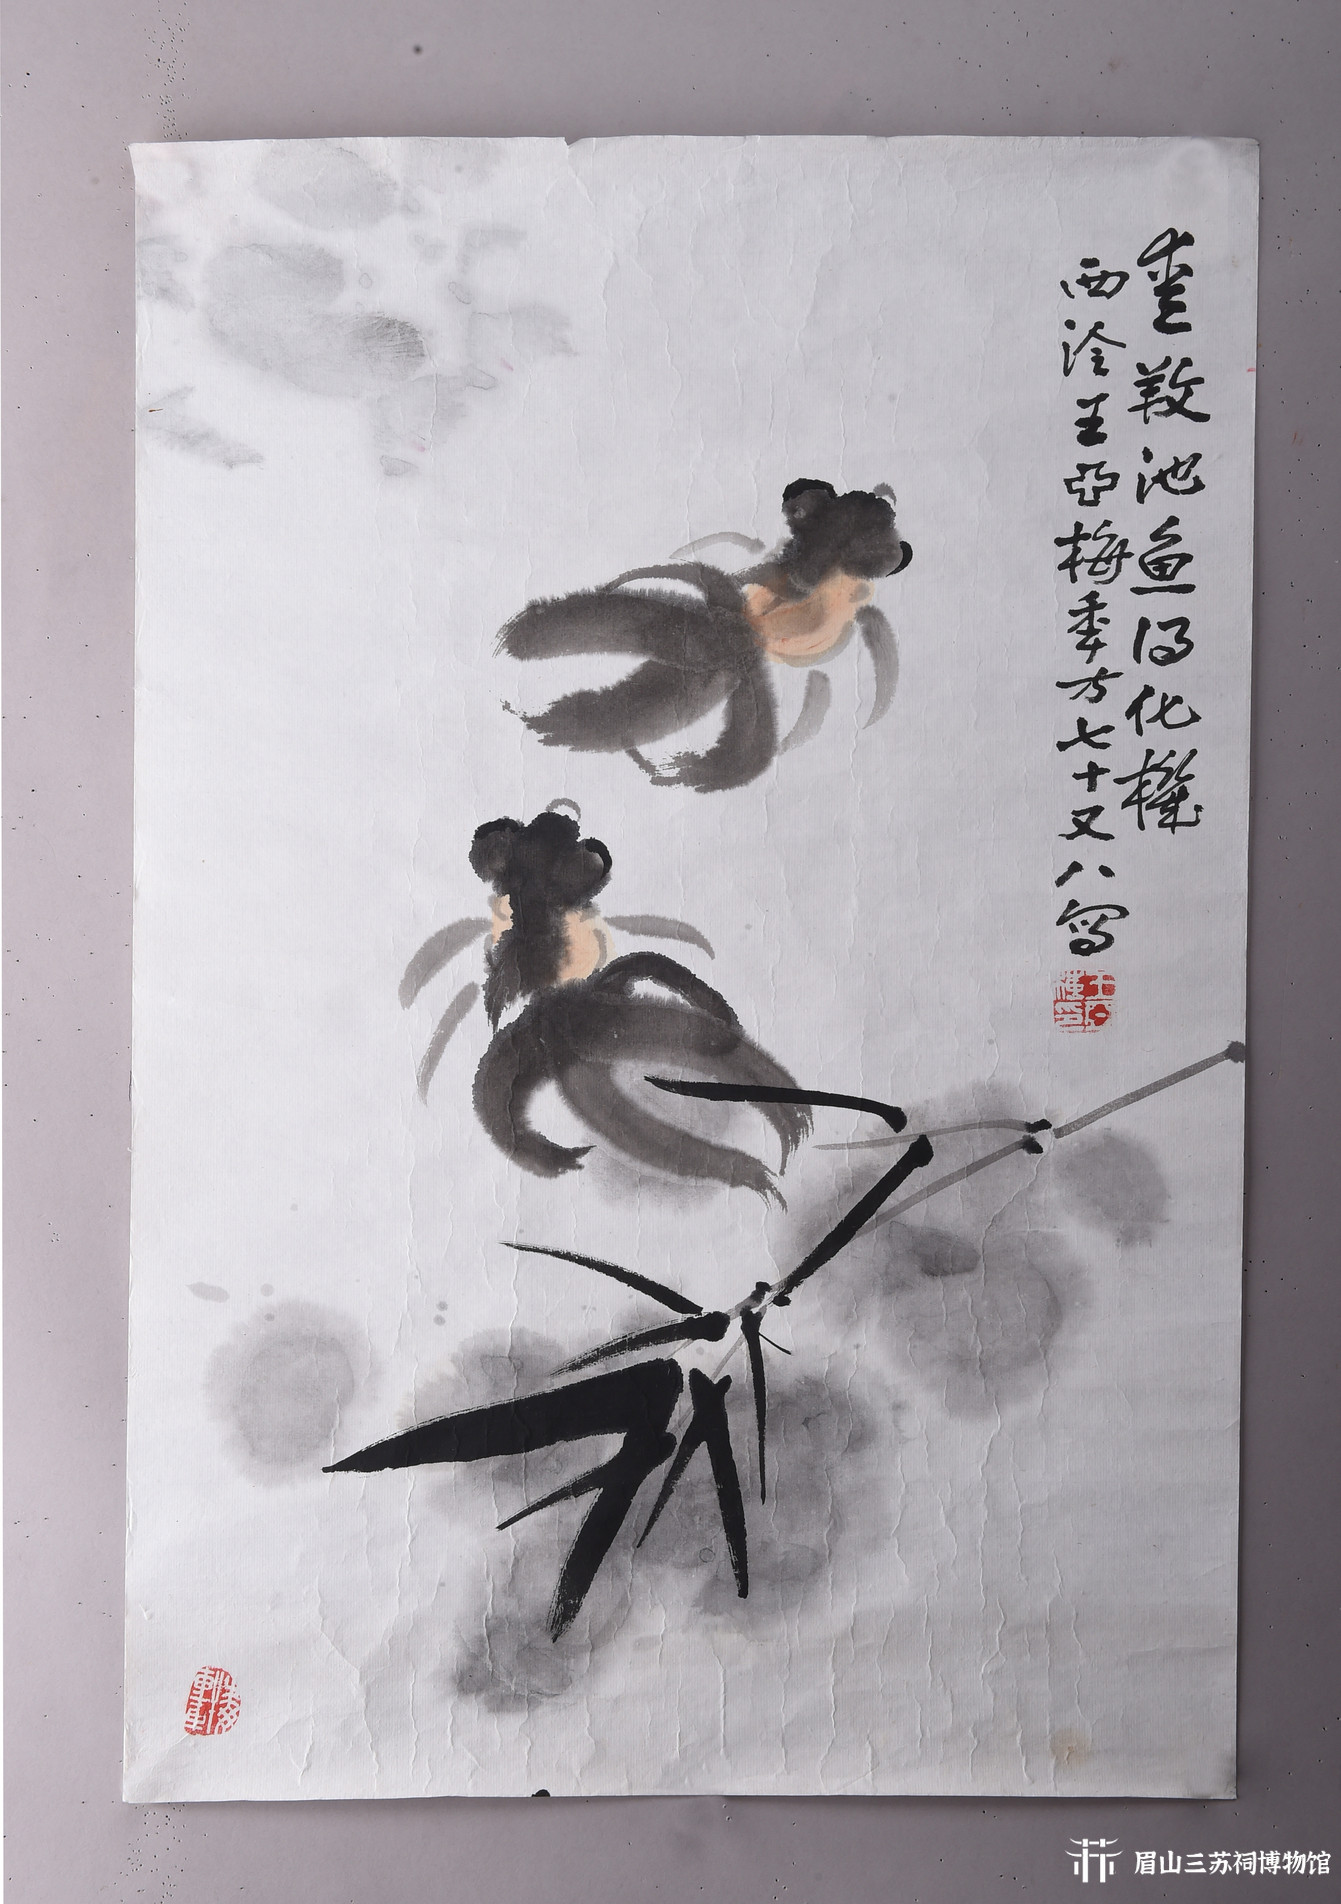 画教池鱼得化机
西泠王亚梅年方七十又八写
眉山三苏祠博物馆